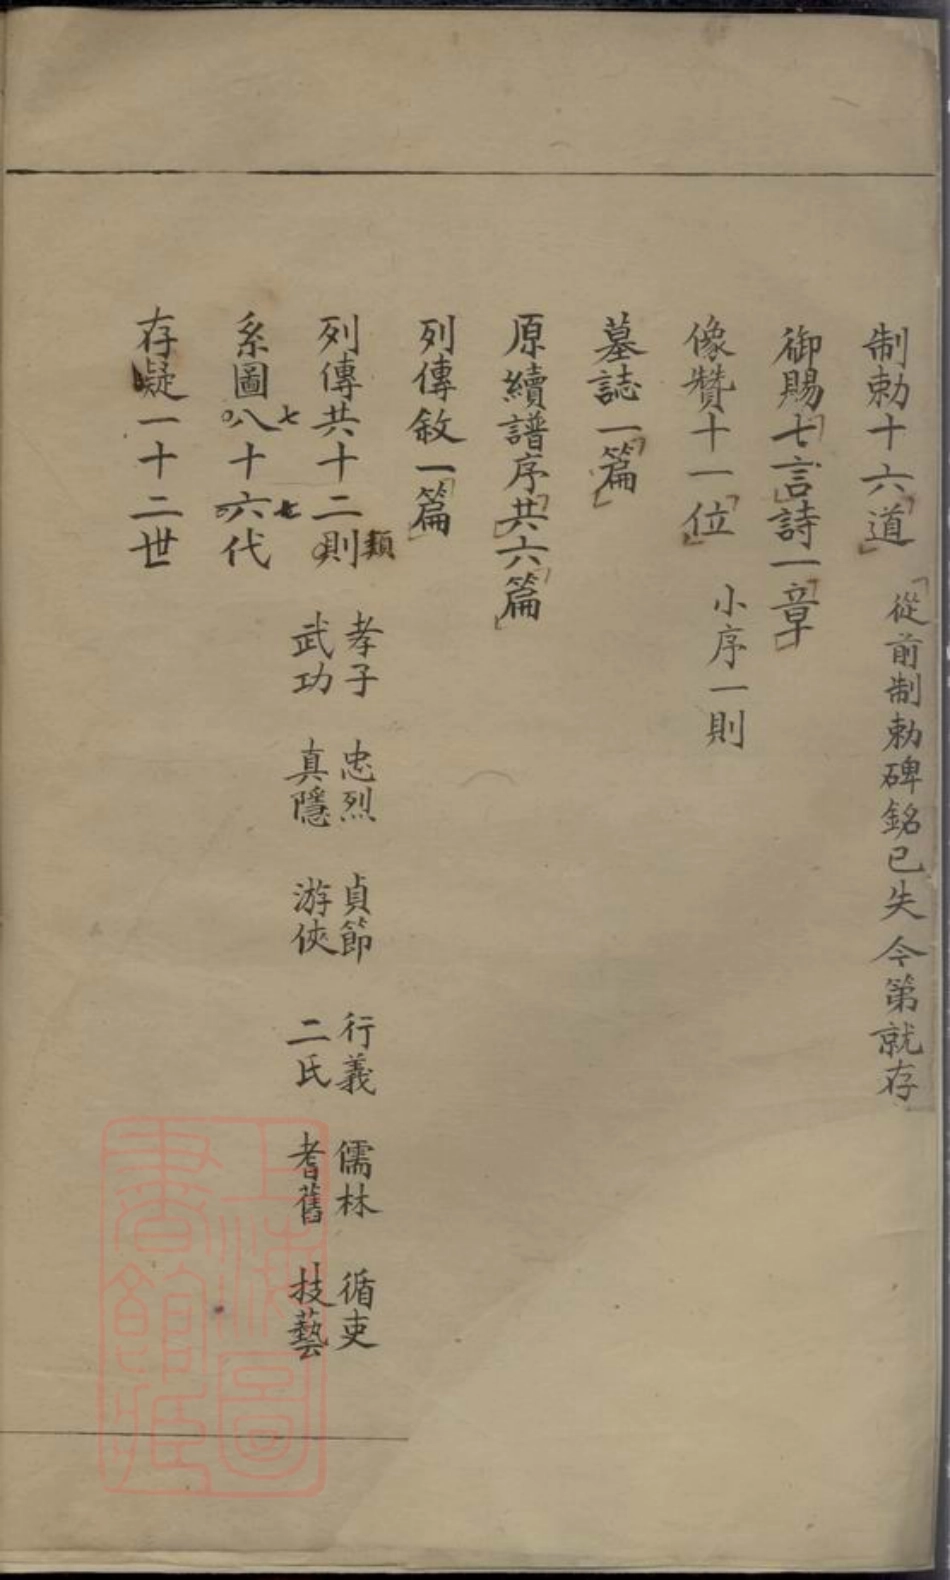 制勅十六道
從前制勅碑銘已失今第就存
御賜七言詩一章
像贊十一位 小序一則
墓誌一篇
原續譜序共六篇
列傳敘一篇
列傳共十二則類
孝子 忠烈 貞節 行義 儒林 循吏
武功 真隱 游俠 二氏 耆舊 技藝
系圖八十六代
七 七
存疑一十二世
上海圖
書館藏